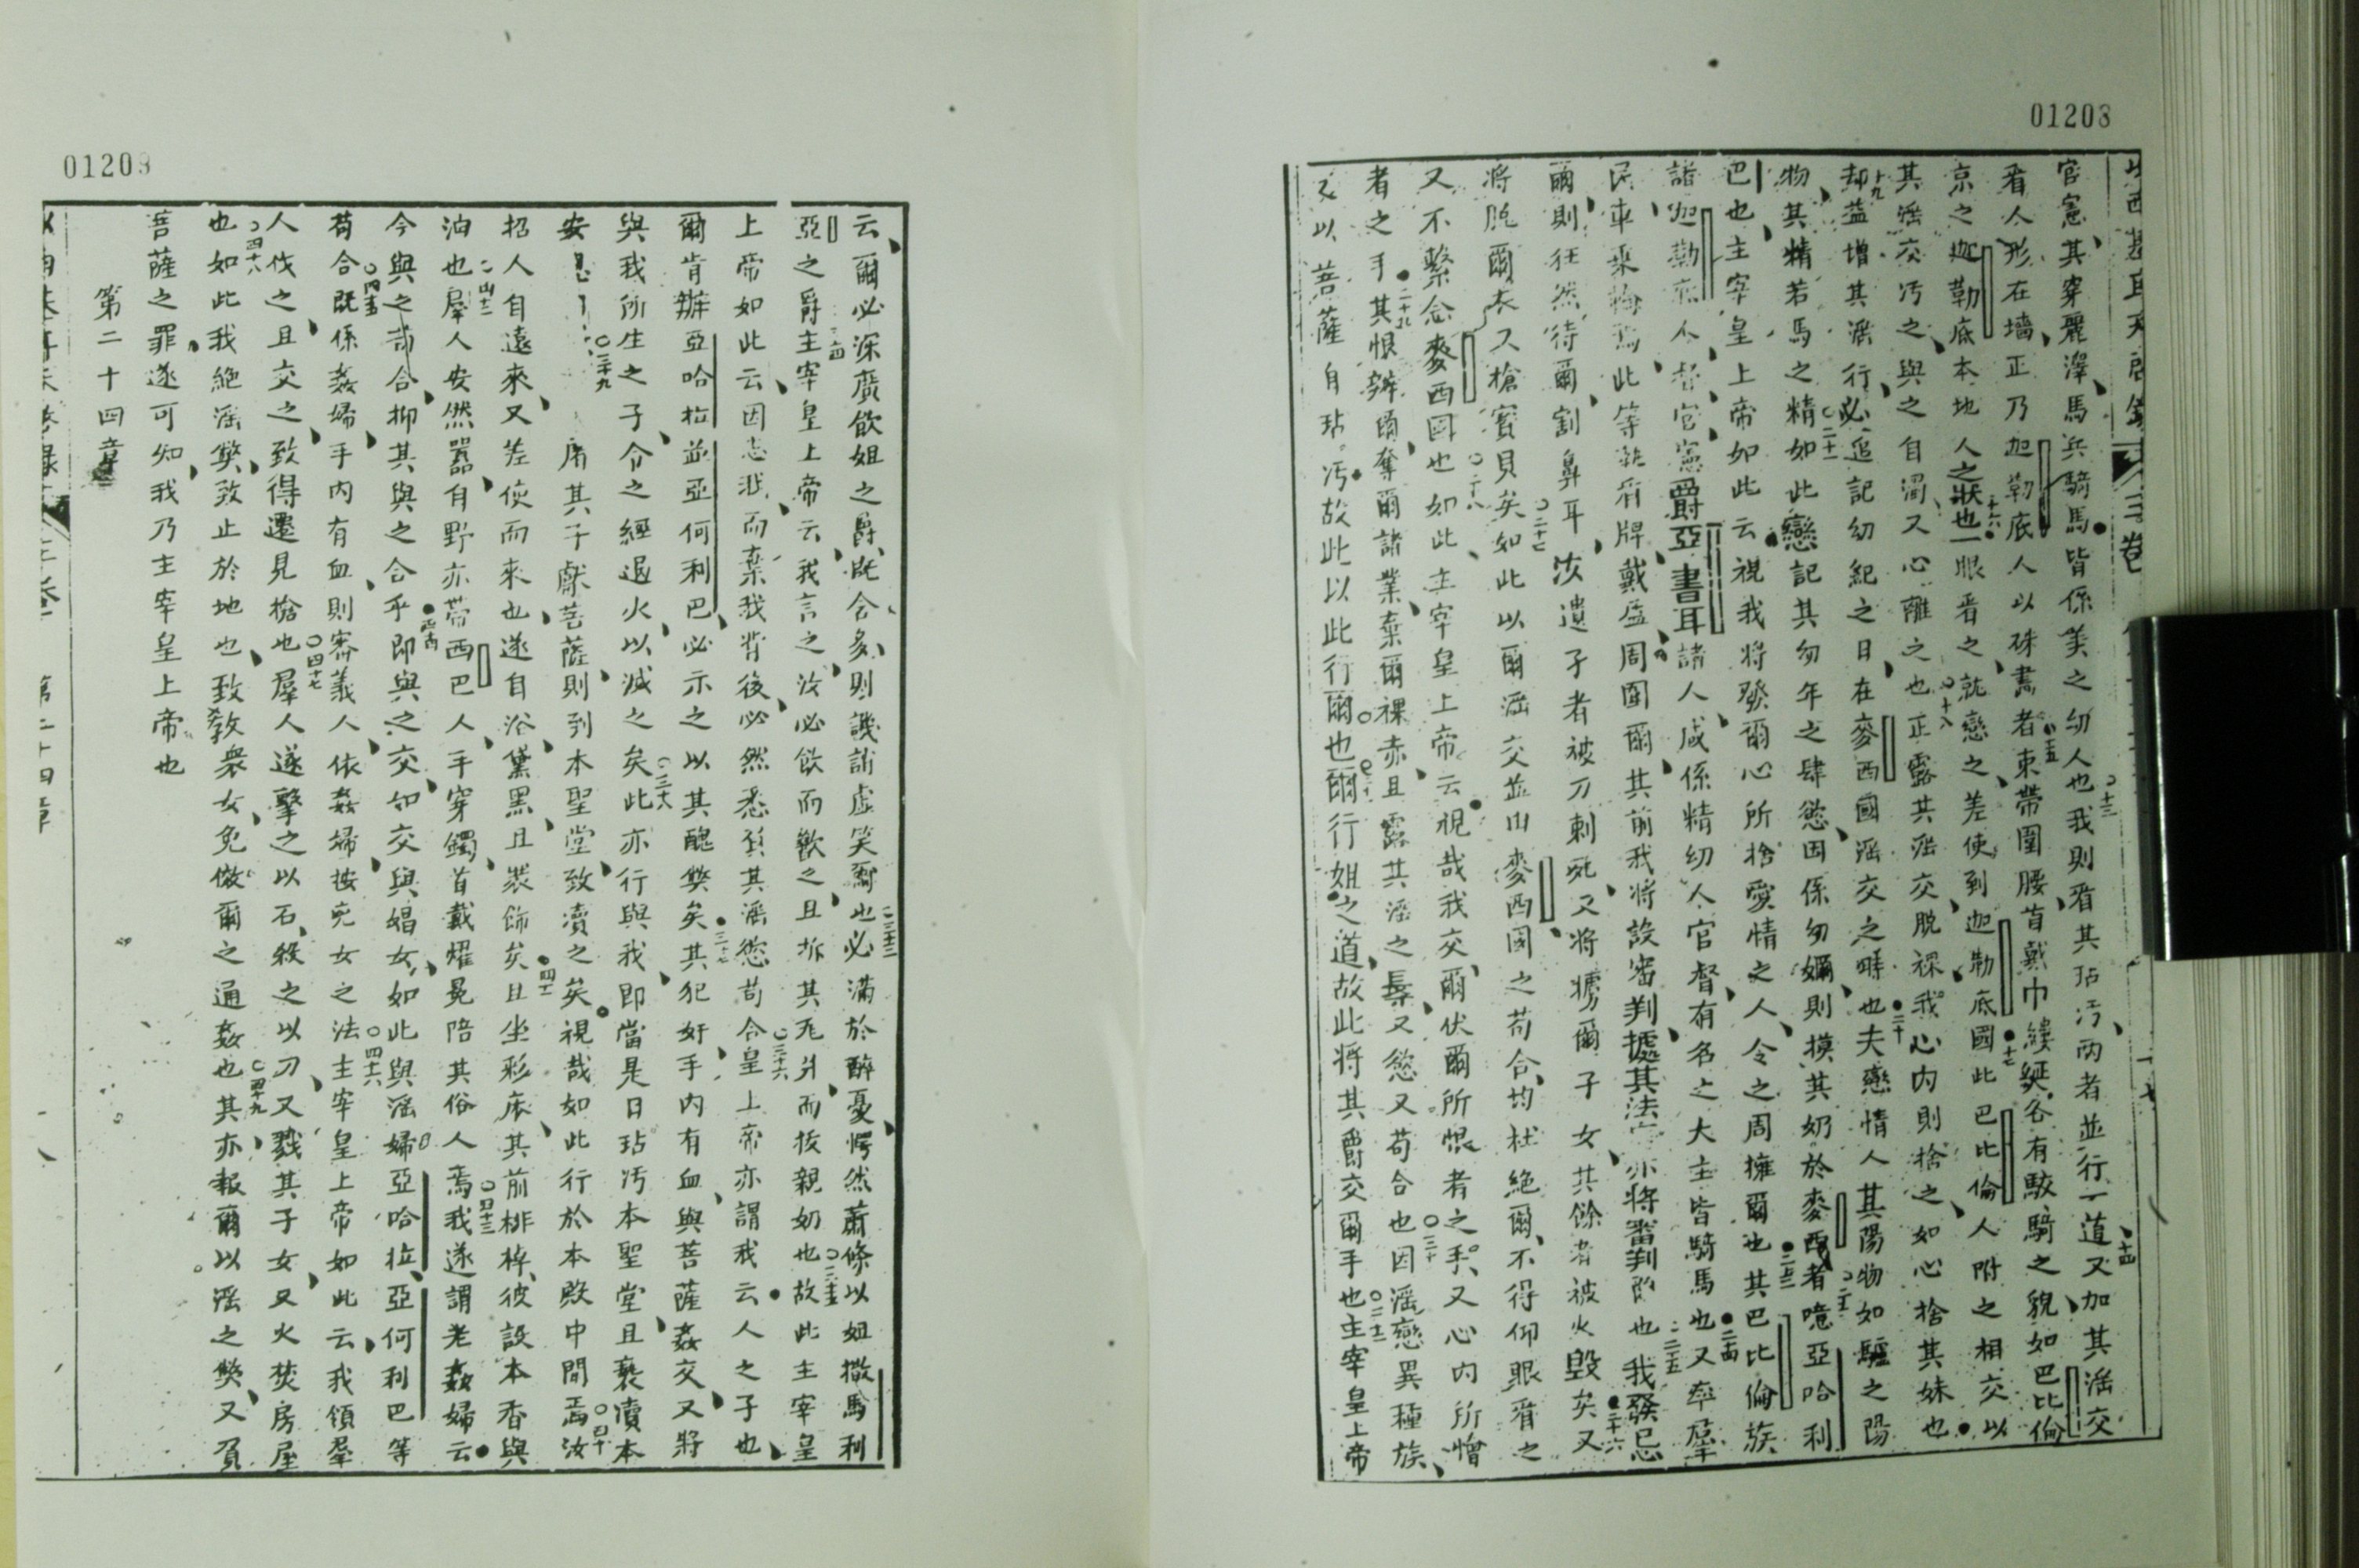 01208
官憲其穿麗澤馬兵騎馬皆係美之幼人也我則看其玷汚兩者並行一道又加其滛交
看人形在墻正乃迦勒底人以硃畵者束帶圍腰首戴巾縷綖各有駮騎之貌如巴比倫
京之迦勒底本地人之狀也一眼看之就戀之差使到迦勒底國此巴比倫人附之相交以
其滛交汚之與之自濁又心離之也正露其滛交脱裸我心内則捨之如心捨其妹也
却益增其滛行必追記幼紀之日在麥西國滛交之時也夫戀情人其陽物如驢之陽
物其精若馬之精如此戀記其幼年之肆慾因係幼嬭則摸其奶於麥西者噫亞哈利
巴也主宰皇上帝如此云視我將發爾心所捨愛情之人令之周擁爾也其巴比倫族
諸迦勒底人督官憲爵亞書耳諸人咸係精幼人官督有名之大主皆騎馬也又率羣
民車乘輪焉此等執盾牌戴盔周圍爾其前我將設審判據其法亦將審判爾也我發己
爾則狂然待爾割鼻耳汝遺子者被刀刺死又將擄爾子女其餘者被火毁矣又
將脱爾衣又搶寳貝矣如此以爾滛交並由麥西國之苟合均杜絶爾不得仰眼看之
又不繫念麥西國也如此主宰皇上帝云視哉我交爾伏爾所恨者之手又心内所憎
者之手其恨辦爾奪爾諸業棄爾裸赤且露其滛之辱又慾又苟合也因滛戀異種族
又以菩薩自玷汚故此以此行爾也爾行姐之道故此將其爵交爾手也主宰皇上帝
01209
云爾必深廣飲姐之爵旣含多則譏誚虛笑爾也必滿於醉憂愕然蕭條以姐撒馬利
亞之爵主宰皇上帝云我言之汝必飲而歠之且拆其瓦爿而拔親奶也故此主宰皇
上帝如此云因忘我而棄我背後必然悉負其滛慾苟合皇上帝亦謂我云人之子也
爾肯辦亞哈拉並亞何利巴必示之以其醜獘矣其犯奸手内有血與菩薩姦交又將
與我所生之子介之經過火以滅之矣此亦行與我即當是日玷汚本聖堂且褻瀆本
安息 屠其子獻菩薩則到本聖堂致瀆之矣視哉如此行於本殿中間焉汝
招人自遠來又差使而來也遂自浴黛黑且裝飾矣且坐彩床其前排棹彼設本香與
油也羣人安然囂自野亦帶西巴人手穿鐲首戴耀冕陪其俗人焉我遂謂老姦婦云
今與之苟合抑其與之合乎即與之交如交與娼女如此與滛婦亞哈拉亞何利巴等
苟合旣係姦婦手内有血則審義人依姦婦按兇女之法主宰皇上帝如此云我領羣
人伐之且交之致得遷見搶也羣人遂擊之以石殺之以刀又戮其子女又火焚房屋
也如此我絶滛獘致止於地也致敎衆女免倣爾之通姦也其亦報爾以滛之獘又負
菩薩之罪遂可知我乃主宰皇上帝也
第二十四章
第二十四章